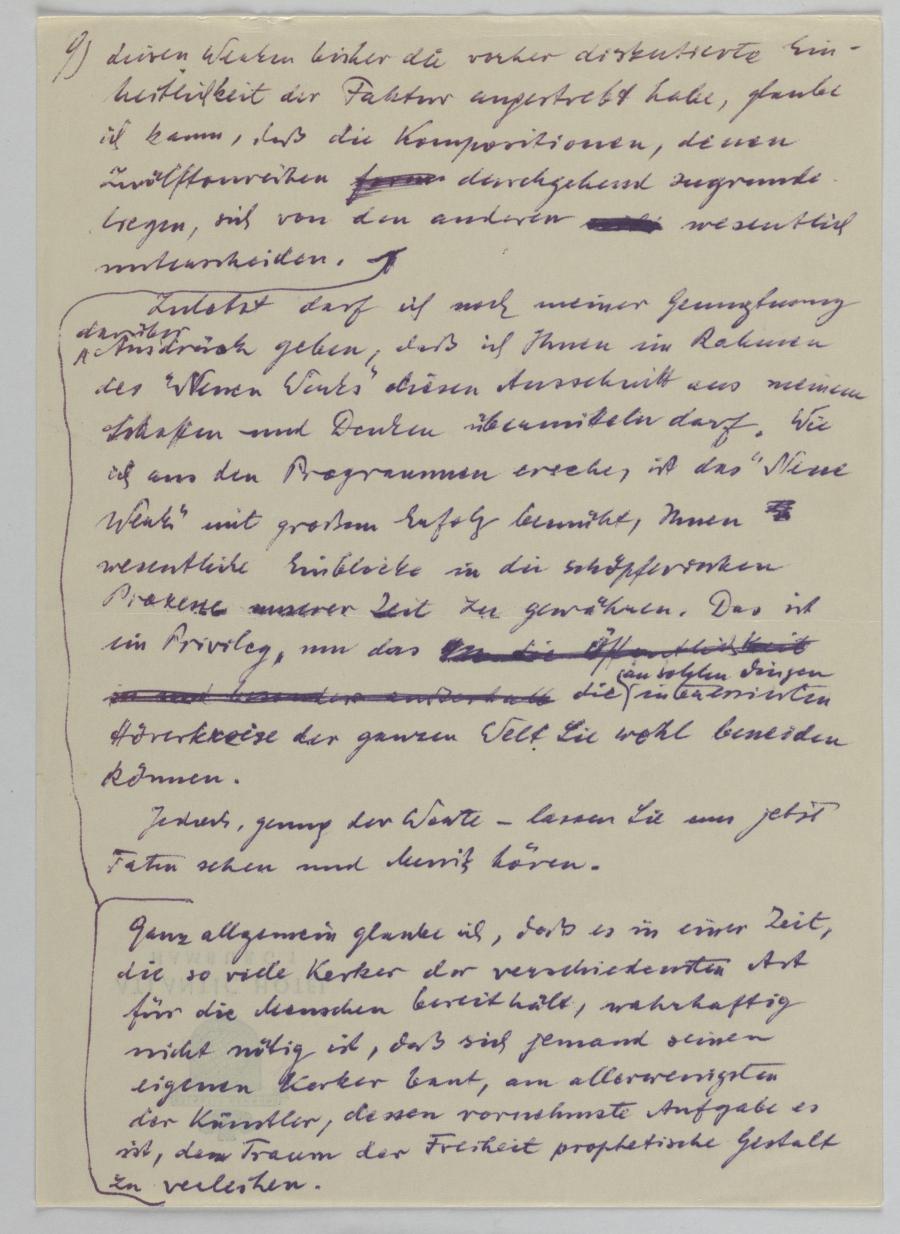 9) diesen Werken bisher die vorher diskutierte Ein-
heitlichkeit der Faktur angestrebt habe, glaube
ich kaum, daß die Kompositionen, denen
Zwölftonreihen durchgehend zugrunde
liegen, sich von den anderen wesentlich
unterscheiden.
Zuletzt darf ich noch meiner Genugtuung
darüber
Ausdruck geben, daß ich Ihnen im Rahmen
des "Neuen Werks" diesen Ausschnitt aus meinem
Schaffen und Denken übermitteln darf. Wie
ich aus den Programmen ersehe, ist das "Neue
Werk" mit großem Erfolg bemüht, Ihnen
wesentliche Einblicke in die schöpferischen
Prozesse unserer Zeit zu gewähren. Das ist
ein Privileg, um das um die Öffentlichkeit
an solchen Dingen
in und besonders außerhalb die interessierten
Hörerkreise der ganzen Welt Sie wohl beneiden
können.
Jedoch, genug der Worte – lassen Sie uns jetzt
Taten sehen und Musik hören.
Ganz allgemein glaube ich, daß es in einer Zeit,
die so viele Kerker der verschiedensten Art
für die Menschen bereithält, wahrhaftig
nicht nötig ist, daß sich jemand seinen
eigenen Kerker baut, am allerwenigsten
der Künstler, dessen vornehmste Aufgabe es
ist, dem Traum der Freiheit prophetische Gestalt
zu verleihen.